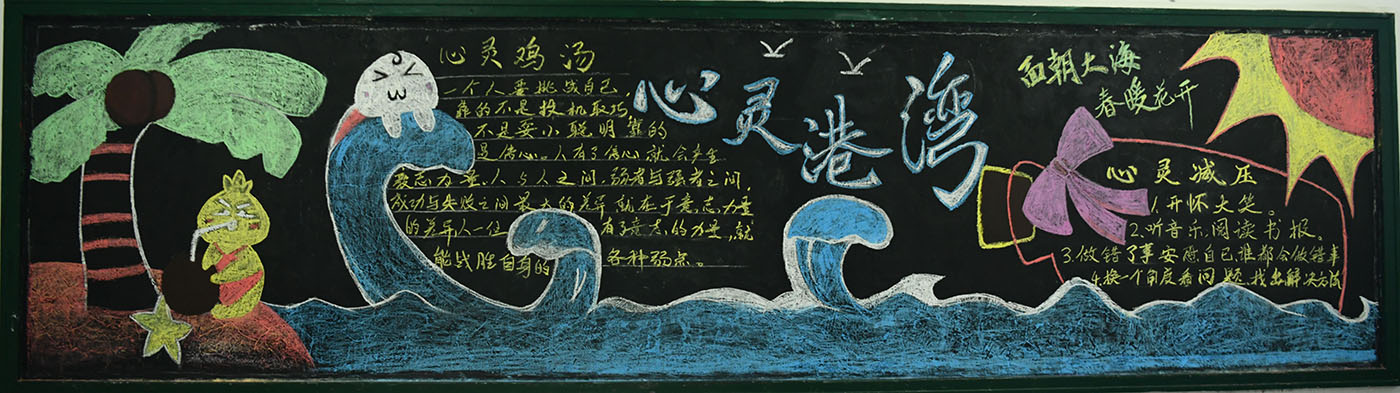 心灵鸡汤
一个人要挑战自己，
靠的不是投机取巧，
不是耍小聪明靠的
是信心。人有了信心就会产生
意志力量。人与人之间，弱者与强者之间，
成功与失败之间最大的差异就在于意志力量
的差异人一但有了意志的力量，就
能战胜自身的各种弱点。
心灵港湾
面朝大海
春暖花开
心灵减压
1.开怀大笑。
2.听音乐，阅读书报。
3.做错了事安慰自己谁都会做错事
4.换一个角度看问题，找出解决方法